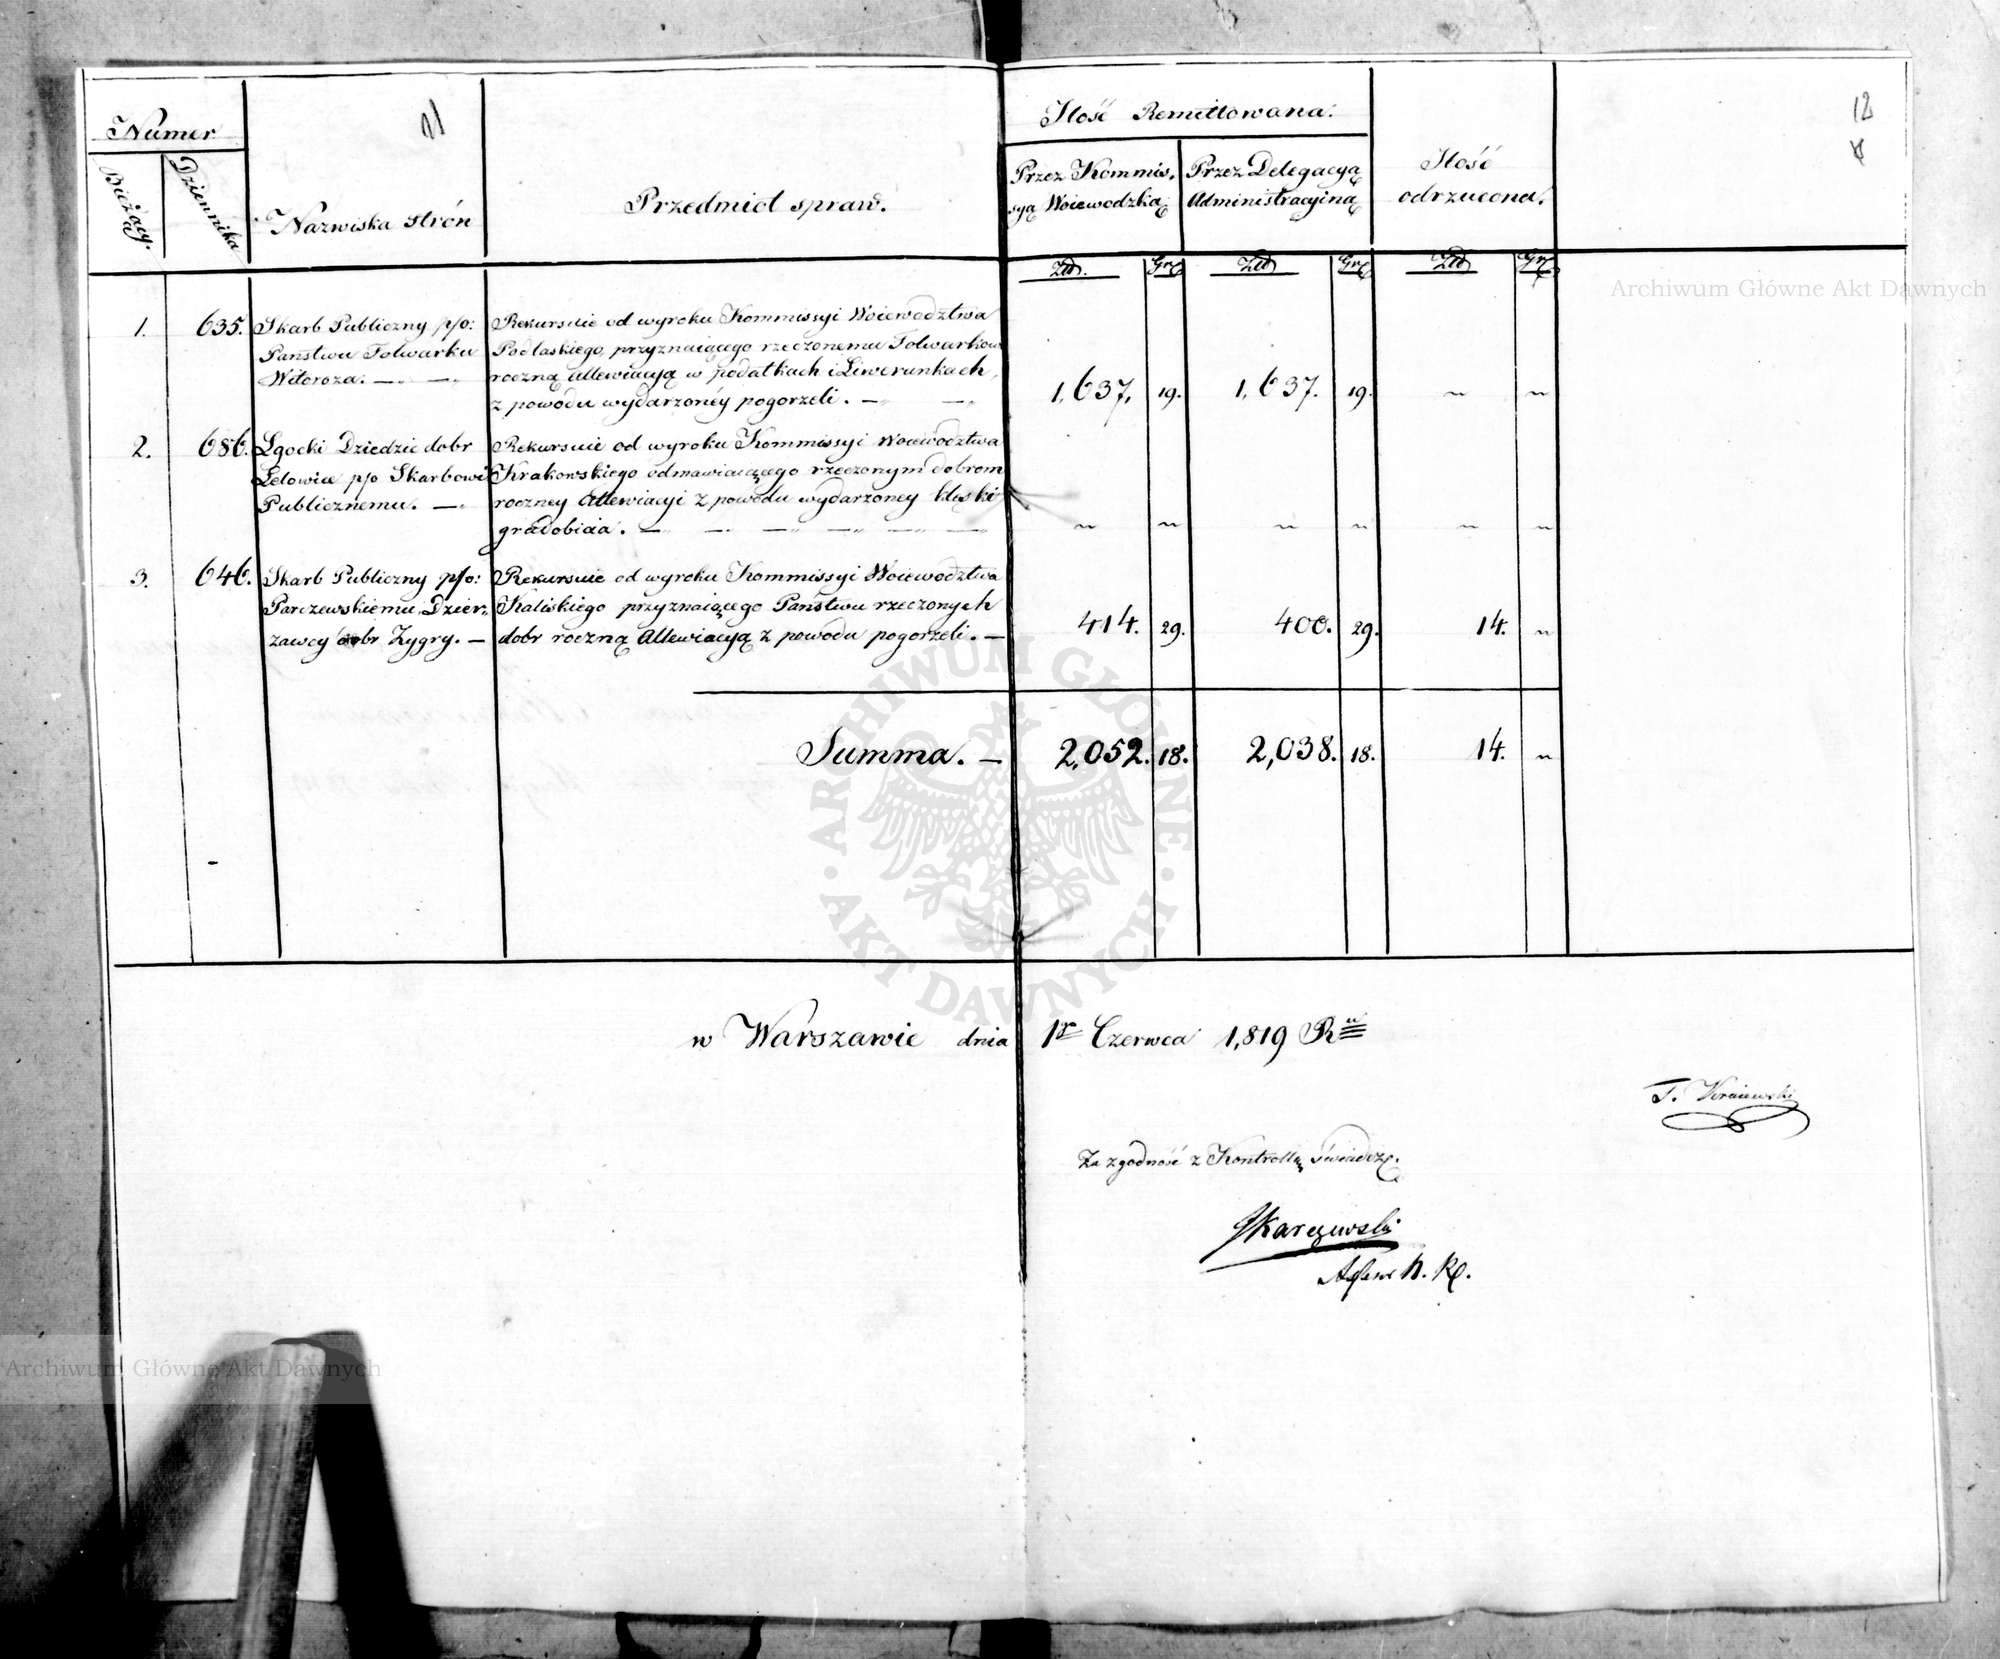 11
12
Numer
Bieżący.
Dziennika
Nazwiska Strón
Przedmiot spraw.
Ilość Remittowana.
Przez Kommis,
syą Woiewodzką
Przez Delegacyą
Administracyiną
Ilość
odrzucona.
Złł. Gr. Złł Gr. Złł Gr.
1. 635. Skarb Publiczny p/o: Rekursuie od wyroku Kommissyi Woiewodztwa
Państwu Folwarku Podlaskiego, przyznaiącego rzeczonemu Folwarkow
Witoroza. — — roczną allewiacyą w podatkach i Liwerunkach,
z powodu wydarzonéy pogorzeli. — — 1,637, 19. 1,637. 19. ~ ~
2. 686. Lgocki Dziedzic dobr Rekursuie od wyroku Kommissyi Woiewodztwa
Lelowice p/o Skarbowi Krakowskiego odmawiaiącego rzeczonym dobrom
Publicznemu. — roczney Allewiacyi z powodu wydarzoney klęski
gradobicia. — — — — — — ~ ~ ~ ~ ~ ~
3. 646. Skarb Publiczny p/o: Rekursuie od wyroku Kommissyi Woiewodztwa
Parczewskiemu Dzier, Kaliskiego przyznaiącego Państwu rzeczonych
zawcy dobr Zygry. — dobr roczną Allewiacyą z powodu pogorzeli. — 414. 29. 400. 29. 14. ~
Summa. — 2,052. 18. 2,038. 18. 14. ~
w Warszawie dnia 1go Czerwca 1,819 Ru
Za zgodność z Kontrollą świadczę.
Skarzewski
Archiwum Główne Akt Dawnych
ARCHIWUM GŁÓWNE · AKT DAWNYCH ·
Archiwum Główne Akt Dawnych